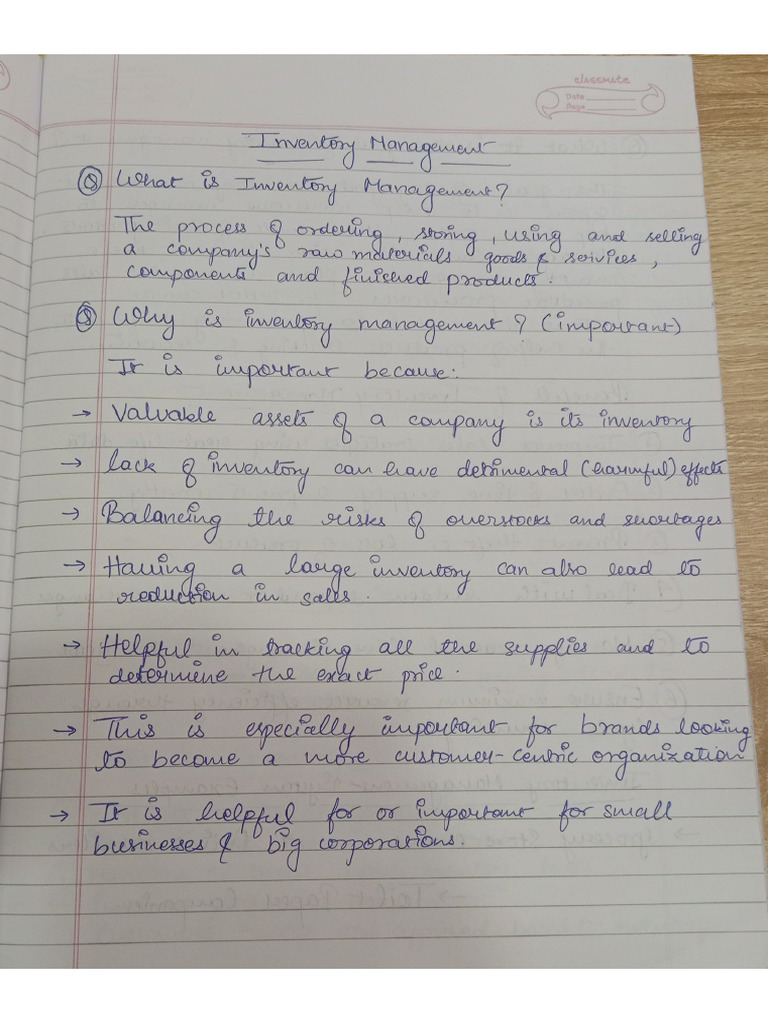 classmate
Date
Page
Inventory Management
Q What is Inventory Management?
The process of ordering, storing, using and selling
a company's raw materials goods & services,
components and finished products.
Q Why is inventory management? (important)
It is important because:
→ Valuable assets of a company is its inventory
→ lack of inventory can have detrimental (harmful) effects
→ Balancing the risks of overstocks and shortages
→ Having a large inventory can also lead to
reduction in sales.
→ Helpful in tracking all the supplies and to
determine the exact price.
→ This is especially important for brands looking
to become a more customer-centric organization
→ It is helpful for or important for small
businesses & big corporations.